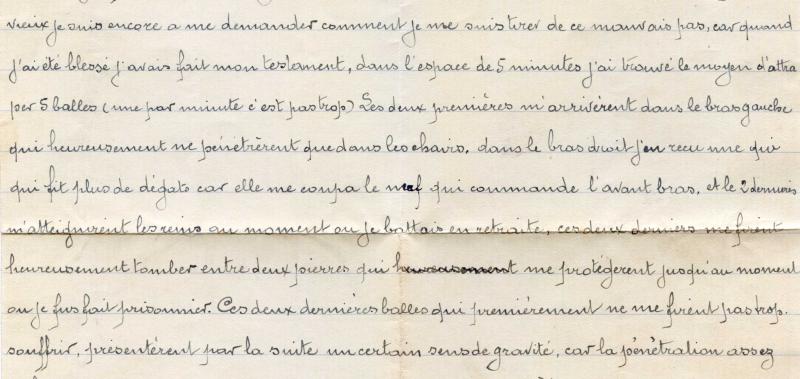 vieux je suis encore a me demander comment je me suis tirer de ce mauvais pas, car quand
j'ai été blessé j'avais fait mon testament, dans l'espace de 5 minutes j'ai trouvé le moyen d'attra
per 5 balles (une par minute c'est pas trop) Les deux premières m'arrivèrent dans le bras gauche
qui heureusement ne pénétrèrent que dans les chairs, dans le bras droit j'en reçu une qui
qui fit plus de dégats car elle me coupa le nerf qui commande l'avant bras, et le 2 dernières
m'atteignirent les reins au moment ou je battais en retraite, ces deux derniers me firent
heureusement tomber entre deux pierres qui heureusement me protégèrent jusqu'au moment
ou je fus fait prisonnier. Ces deux dernières balles qui premièrement ne me firent pas trop.
souffrir, présentèrent par la suite un certain sens de gravité, car la pénétration assez